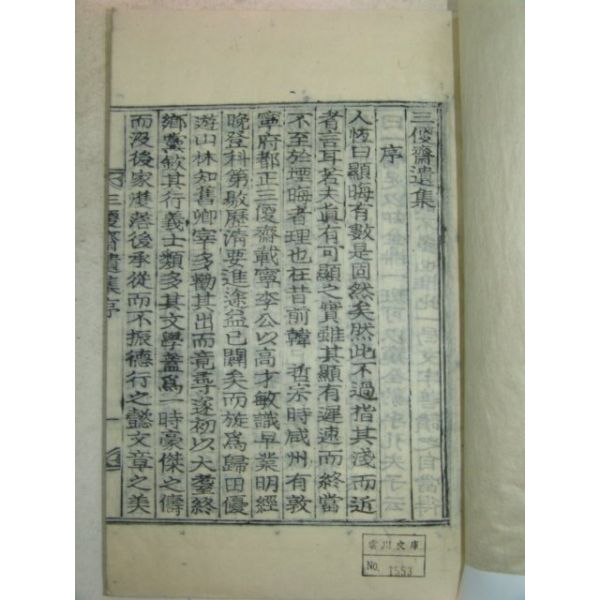 三優齋遺集
序
人恆曰顯晦有數是固然矣然此不過指其淺而近
者言耳若夫眞有可顯之實雖其顯有遲速而終當
不至於堙晦者理也在昔前韓 哲宗時咸州有敦
寧府都正三優齋載寧李公以高才敏識早業明經
晚登科第敭歷淸要進途益已闢矣而旋爲歸田優
遊山林知舊卿宰多勸其出而竟尋遂初以大耋終
鄕黨敬其行義士類多其文學蓋爲一時豪傑之儔
而沒後家歷落後承從而不振德行之懿文章之美
三優齋遺集序
一
雲川文庫
No. 1553